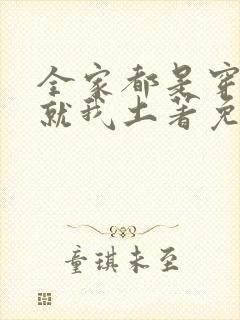 全家都是穿
就我土著免
童琪未至